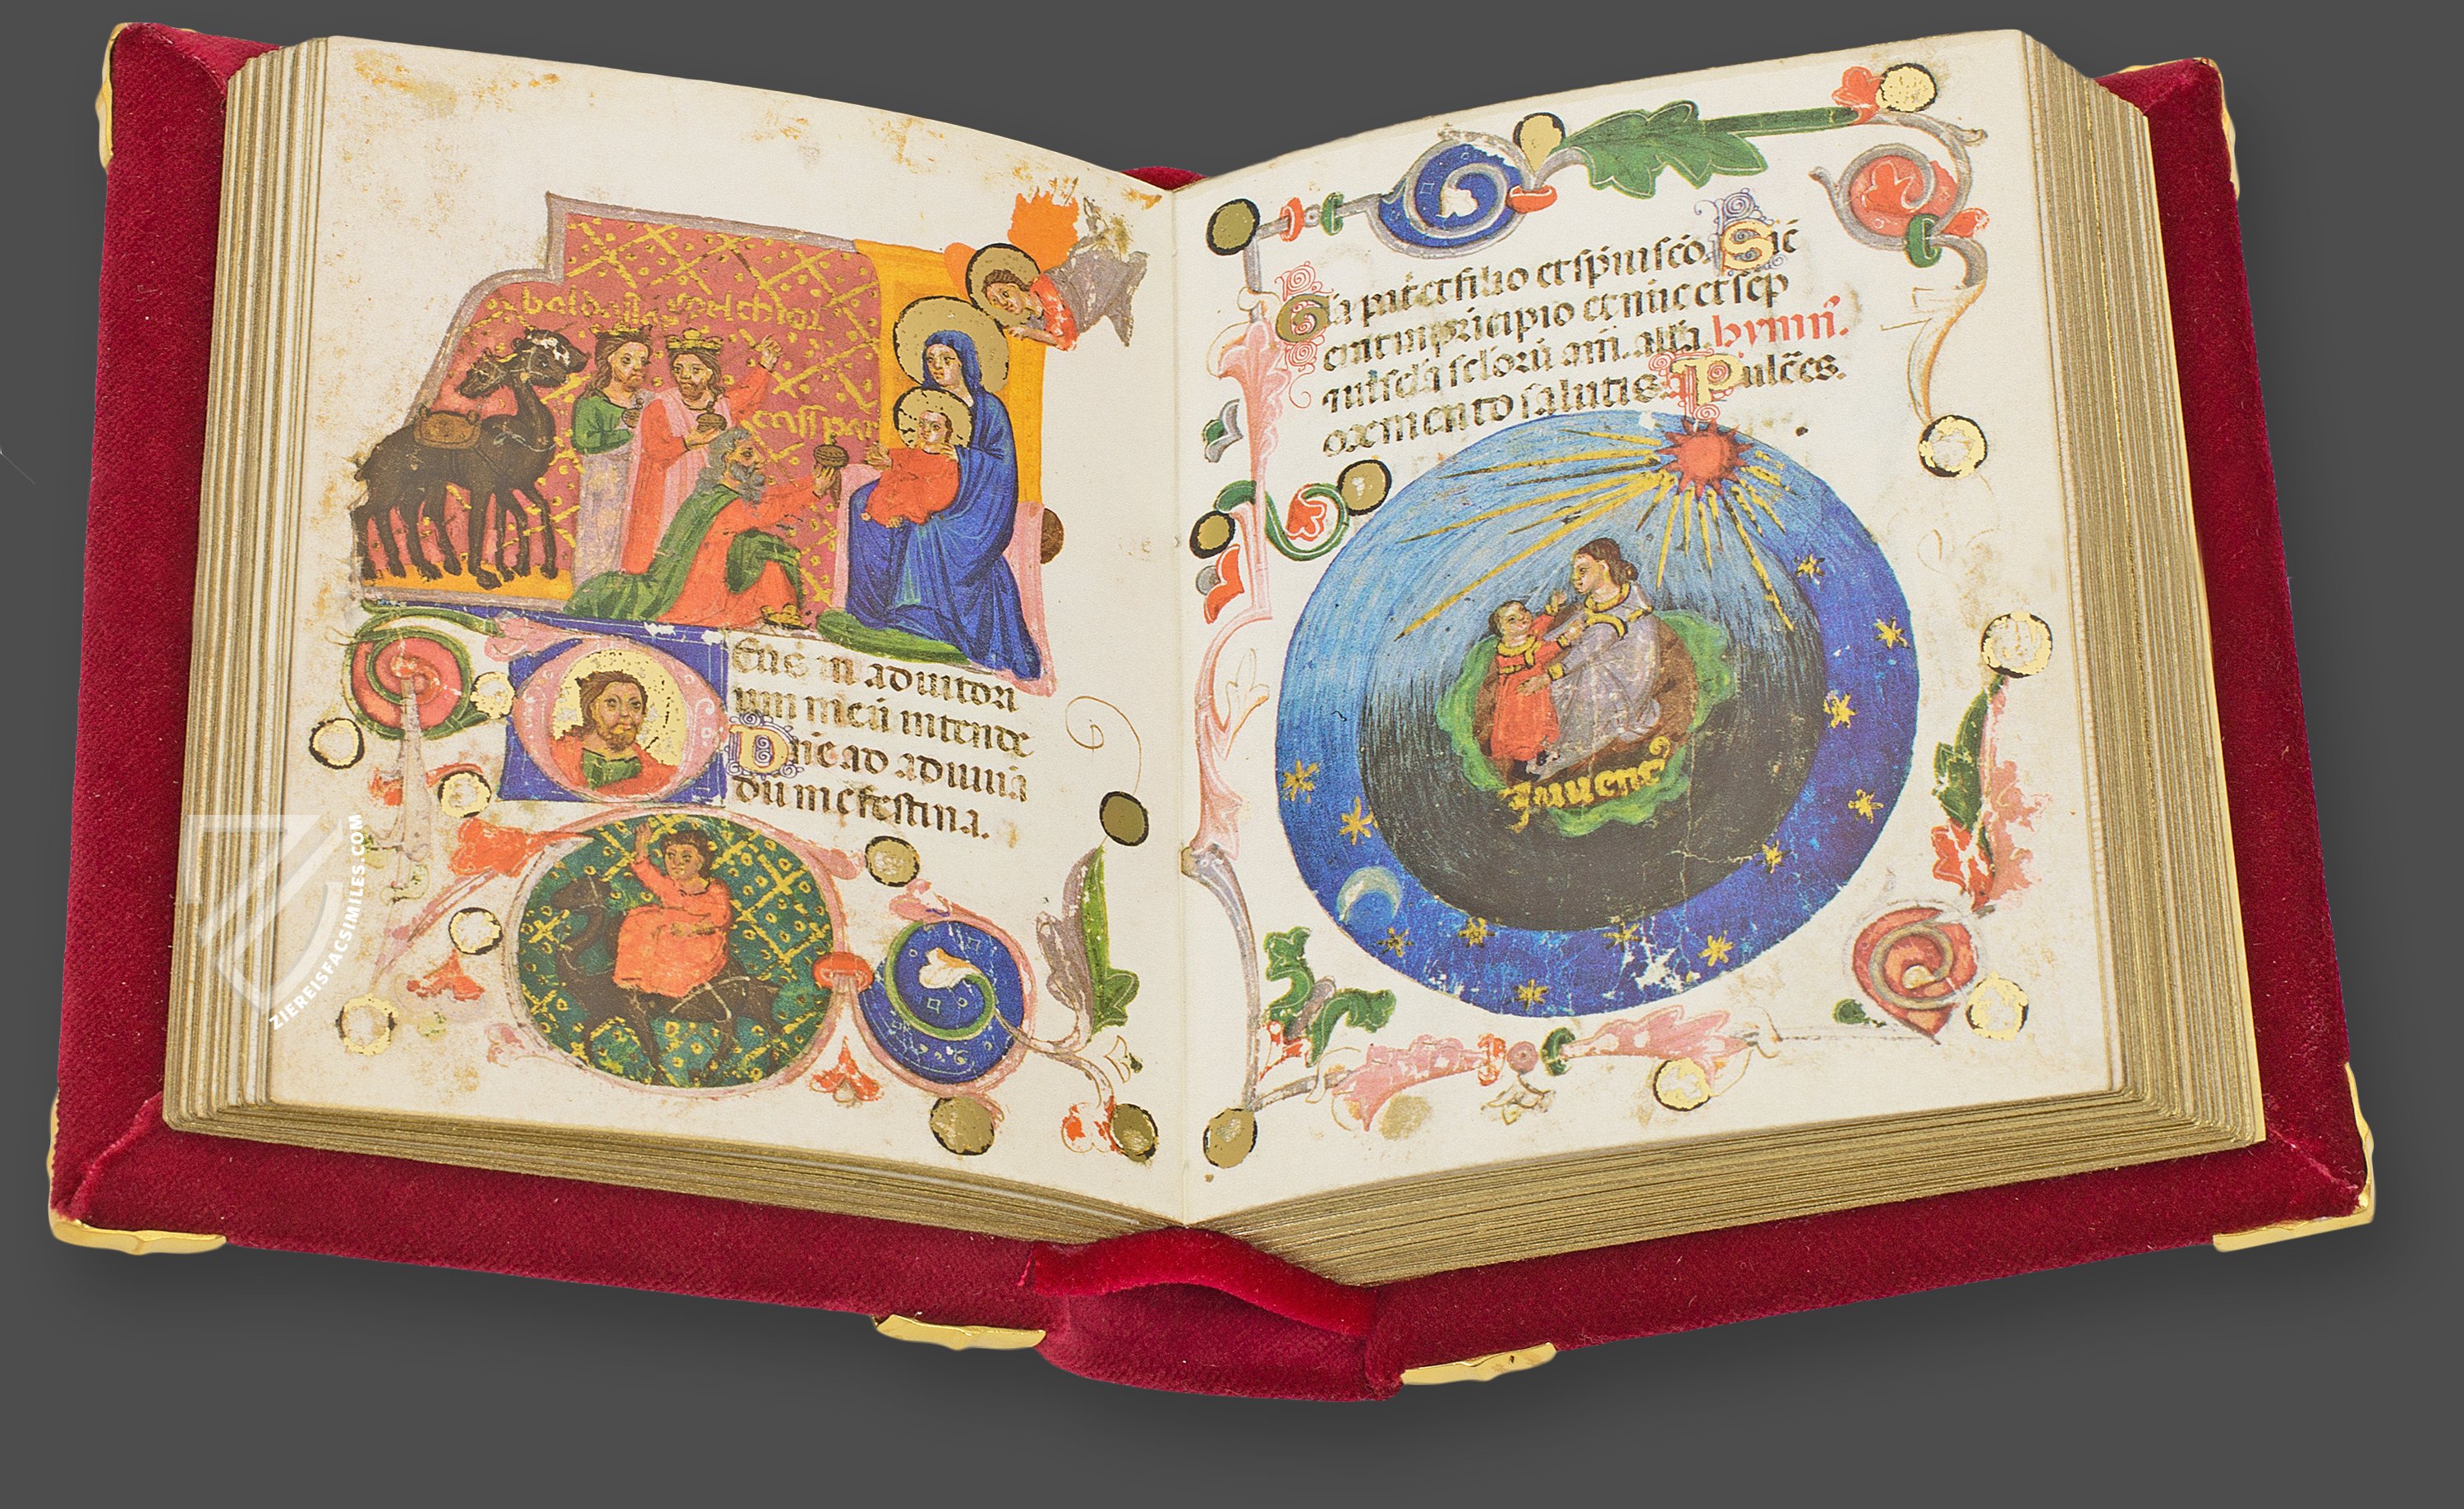 baldasar melchior
casspar
Eus in adiutori
um meũ intende
Dñe ad adiuuã
dũ me festina.
Gl'a pat̃ et filio et sp̃ui sc̃o. Sic̃
erat in principio et nũc et sẽp
⁊ in sc̃la sc̃loꝝ am̃. all'a. hymñ.
oxmento salutis. Pulc̃es.
Juuenẽ
ZIEREISFACSIMILES.COM